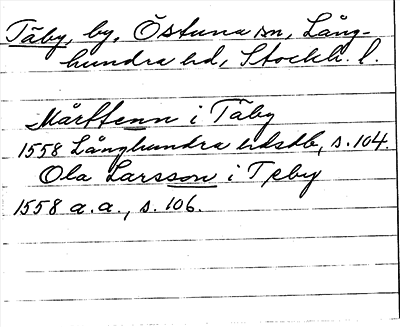 Täby, by, Östuna sn, Lång-
hundra hd, Stockh. l.
Mårttenn i Täby
1558 Långhundra hdsdb, s. 104.
Ola Larsson i Tæby
1558 a.a., s. 106.